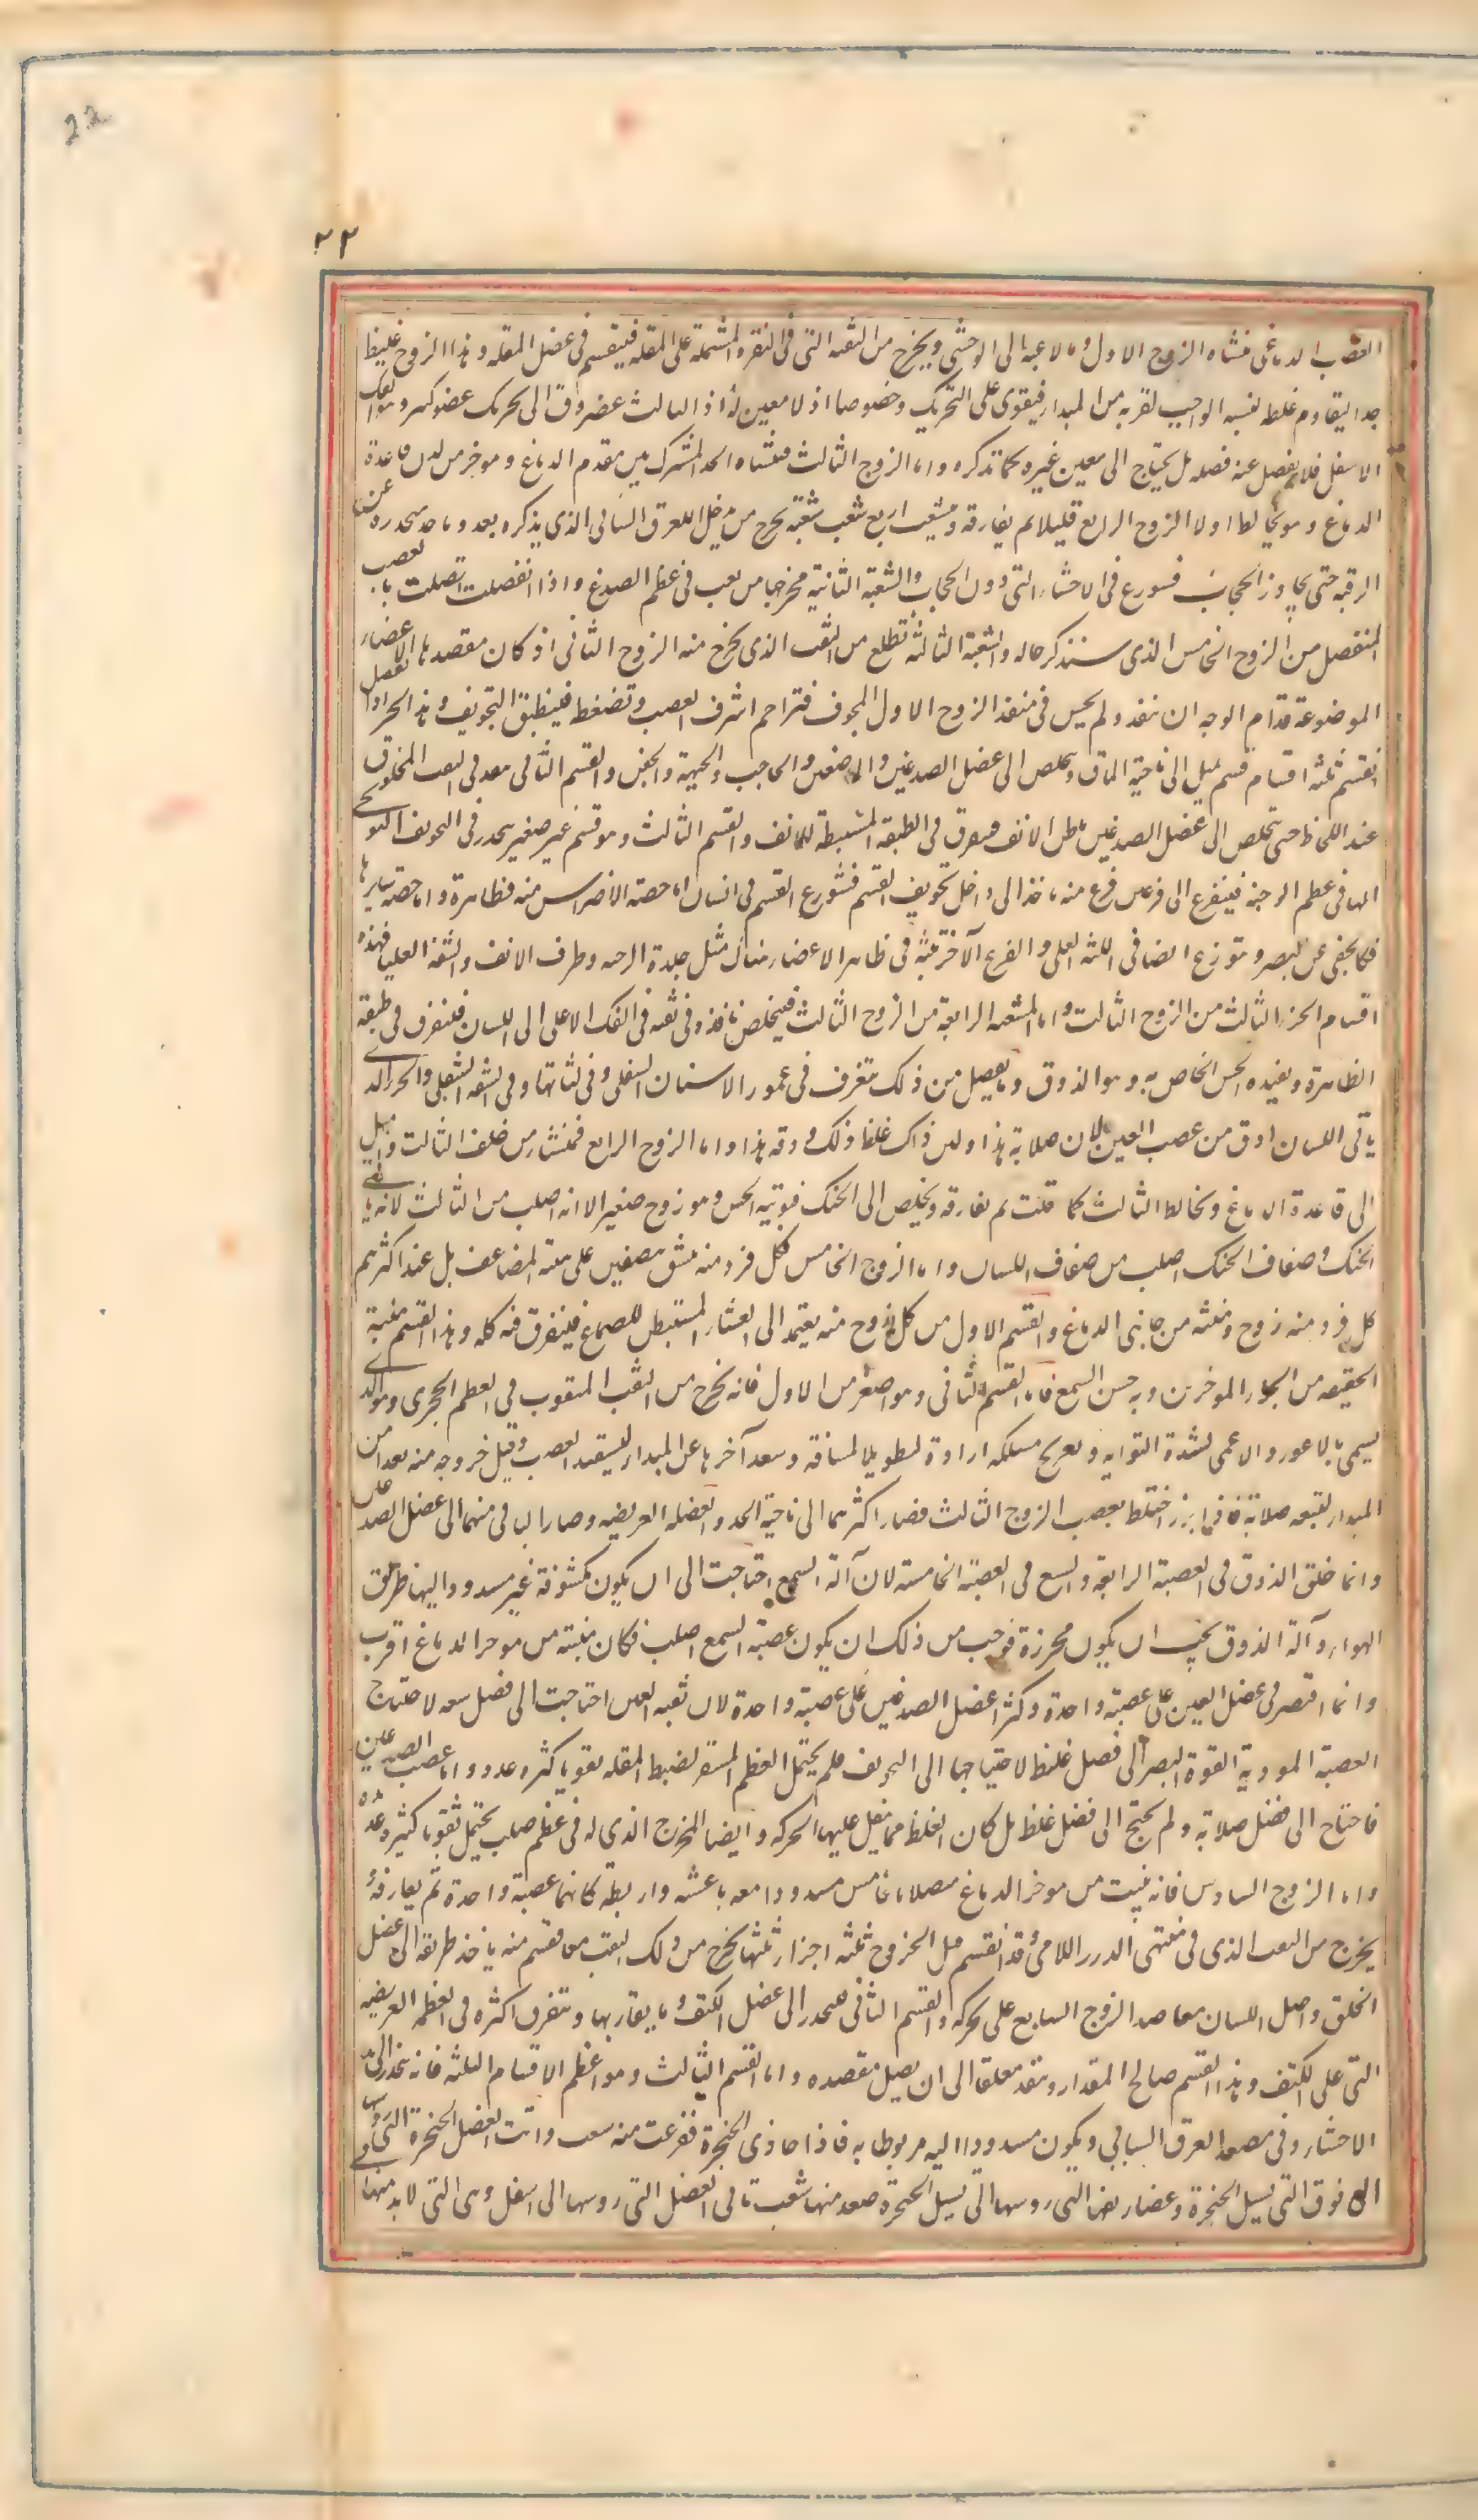 22
٢٢
العصب الدماغى منشاه الزوج الاول ومالا عنه الى الوحشى ويخرج من الثقبه التى فى النقره المشتملة على المقله فينقسم فى عضل المقله وهذا الزوج غليظ
جدا ليقاوم غلظه لينه الواجب لقربه من المبدا فيقوى على التحريك وخصوصا اذ لا معين له اذ الثالث مصروف الى تحريك عضو كبير وهو الفك
الاسفل فلا يفضل عنه فضله بل يحتاج الى معين غيره كما نذكره واما الزوج الثالث فمنشاه الحد المشترك بين مقدم الدماغ وموخره من لدن قاعدة
الدماغ وهو يخالط اولا الزوج الرابع قليلا ثم يفارقه ويتشعب اربع شعب شعبة تخرج من مدخل العرق السباتى الذى نذكره بعد وتاخذ منحدره عن
الرقبه حتى تجاوز الحجاب فتتوزع فى الاحشاء التى دون الحجاب والشعبة الثانية مخرجها من ثقب فى عظم الصدغ واذا انفصلت اتصلت بالعصب
المنفصل من الزوج الخامس الذى سنذكر حاله والشعبة الثالثة تطلع من الثقب الذى يخرج منه الزوج الثانى اذ كان مقصدها الاعضاء
الموضوعة قدام الوجه ان تنفذ ولم يحسن فى منفذ الزوج الاول المجوف فتزاحم اشرف العصب وتضغط فينطبق التجويف وهذا الجزء اذا انفصل
انقسم ثلثة اقسام قسم يميل الى ناحية الماق ويتخلص الى عضل الصدغين والماضغين والحاجب والجبهة والجفن والقسم الثانى ينفذ فى الثقب المخلوق
عند اللحاظ حتى يخلص الى باطن الانف فيتفرق فى الطبقة المستبطنة للانف والقسم الثالث وهو قسم غير صغير ينحدر فى التجويف البربخى
المهيا فى عظم الوجنة فيتفرع الى فرعين فرع منه ياخذ الى داخل تجويف الفم فيتوزع فى الاسنان اما حصة الاضراس منه فظاهرة واما حصة سايرها
فكالخفى عن البصر ويتوزع ايضا فى اللثه العليا والفرع الآخر ينبث فى ظاهر الاعضاء هناك مثل جلدة الوجنه وطرف الانف والشفة العليا فهذه
اقسام الجزء الثالث من الزوج الثالث واما الشعبه الرابعة من الزوج الثالث فيتخلص نافذه فى ثقبه فى الفك الاعلى الى اللسان فتتفرق فى طبقته
الظاهرة ويفيده الحس الخاص به وهو الذوق وما يفضل من ذلك يتفرق فى عمور الاسنان السفلى وفى لثاتها وفى الشفه السفلى والجزء الذى
ياتى اللسان ادق من عصب العين لان صلابة هذا ولين ذاك يعادل غلظ ذلك ودقه هذا واما الزوج الرابع فمنشاه من خلف الثالث واميل
الى قاعدة الدماغ ويخالط الثالث كما قلت ثم يفارقه ويخلص الى الحنك فيوتيه الحس وهو زوج صغير الا انه اصلب من الثالث لانه ياتى
الحنك وصفاق الحنك اصلب من صفاق اللسان واما الزوج الخامس فكل فرد منه ينشق بنصفين على هيئة المضاعف بل عند اكثرهم
كل فرد منه زوج ومنبته من جانبى الدماغ والقسم الاول من كل زوج منه يعتمد الى الغشاء المستبطن للصماخ فيتفرق فيه كله وهذا القسم منبته
الحقيقه من الجزء الموخر من وبه حس السمع فاما القسم الثانى وهو اصغر من الاول فانه يخرج من الثقب المثقوب فى العظم الحجرى وهو الذى
يسمى بالاعور والاعمى لشدة التوايه وتعريج مسلكه ارادة لتطويل المسافة وبعد آخرها عن المبدا ليستفيد العصب قبل خروجه منه بعدا من
المبدا ليتبعه صلابة فاذا برز اختلط بعصب الزوج الثالث فصار اكثرهما الى ناحية الخد والعضله العريضه وصار الباقى منهما الى عضل الصدغين
وانما خلق الذوق فى العصبة الرابعة والسمع فى العصبة الخامسة لان آلة السمع احتاجت الى ان يكون مكشوفة غير مسدود اليها طريق
الهواء وآلة الذوق يجب ان يكون محرزة فوجب من ذلك ان يكون عصبة السمع اصلب فكان منبته من موخر الدماغ اقرب
وانما اقتصر فى عضل العين على عصبة واحدة وكثر اعضل الصدغين على عصبة واحدة لان ثقبه العين احتاجت الى فضل سعه لاحتياج
العصبة المودية القوة البصر الى فضل غلظ لاحتياجها الى التجويف فلم يحتمل العظم المستقر لضبط المقله ثقوبا كثيره عدد واما عصب الصدغين
فاحتاج الى فضل صلابة ولم يحتج الى فضل غلظ بل كان الغلظ مما يثقل عليها الحركه وايضا المخرج الذى له فى عظم صلب يحتمل ثقوبا كثيرة عده
واما الزوج السادس فانه ينبت من موخر الدماغ متصلا بالخامس مسدودا معه باغشيه واربطه كانهما عصبة واحدة ثم يفارقه
يخرج من الثقب الذى فى منتهى الدرز اللامى وقد انقسم قبل الخروج ثلثه اجزاء ثلثتها تخرج من ذلك الثقب معا فقسم منه ياخذ طريقه الى عضل
الحلق واصل اللسان ليعاضد الزوج السابع على تحركه والقسم الثانى ينحدر الى عضل الكتف وما يقاربها ويتفرق اكثره فى العضله العريضه
التى على الكتف وهذا القسم صالح المقدار وينفذ معلقا الى ان يصل مقصده واما القسم الثالث وهو اعظم الاقسام الثلثه فانه ينحدر الى
الاحشاء وفى مصعد العرق السباتى ويكون مسدودا اليه مربوطا به فاذا حاذى الحنجرة تفرعت منه شعب واتت العضل الحنجرة التى روسها
الى فوق التى تشيل الحنجرة وغضاريفها التى روسها التى تشيل الحنجرة صعد منها شعب تاتى العضل التى روسها الى اسفل وهى التى لابد منها